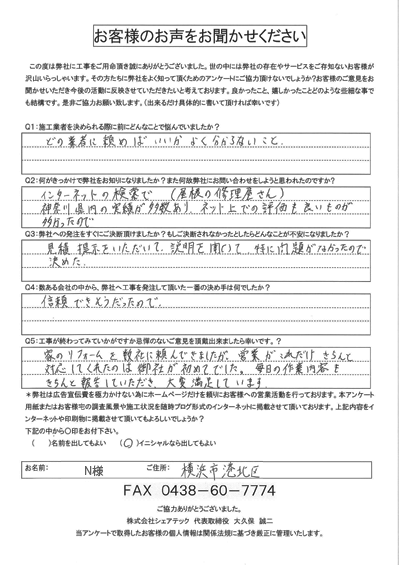 お客様のお声をお聞かせください
この度は弊社に工事をご用命頂き誠にありがとうございました。世の中には弊社の存在やサービスをご存知ないお客様が
沢山いらっしゃいます。その方たちに弊社をよく知って頂くためのアンケートにご協力頂けないでしょうか?お客様のご意見をお
聞かせいただき今後の活動に反映させていただきたいと考えております。良かったこと、嬉しかったことどのような些細な事で
も結構です。是非ご協力お願い致します。（出来るだけ具体的に書いて頂ければ幸いです）
Q1:施工業者を決められる際に前にどんなことで悩んでいましたか?
どの業者に頼めばいいかよく分からないこと.
Q2:何がきっかけで弊社をお知りになりましたか?また何故弊社にお問い合わせをしようと思われたのですか?
インターネットの検索で （屋根の修理屋さん）
神奈川県内の実績が多数あり、ネット上での評価も良いものが
多かったので
Q3:弊社への発注をすぐにご決断頂けましたか?もしご決断されなかったとしたらどんなことが不安になりましたか?
見積提示をいただいて、説明を聞いて、特に問題がなかったので
決めた.
Q4:数ある会社の中から、弊社へ工事を発注して頂いた一番の決め手は何でしたか?
信頼できそうだったので.
Q5:工事が終わってみていかがですか忌憚のないご意見を頂戴出来ましたら幸いです。
家のリフォームを数社に頼んできましたが、営業がこれだけきちんと
対応してくれたのは御社が初めてでした。毎日の作業内容を
きちんと報告していただき、大変満足しています.
＊弊社は広告宣伝費を極力かけない為にホームページだけを頼りにお客様への営業活動を行っております。本アンケート
用紙またはお客様宅の調査風景や施工状況を随時ブログ形式のインターネットに掲載させて頂いております。上記内容をイ
ンターネットや印刷物に掲載させて頂いてもよろしいでしょうか?
下記の中から〇印をお付下さい。
（ ）名前を出してもよい （○）イニシャルなら出してもよい
お名前: N様 ご住所: 横浜市港北区
FAX 0438-60-7774
ご協力ありがとうございました。
株式会社シェアテック 代表取締役 大久保 誠二
当アンケートで取得したお客様の個人情報は関係法規に基づき厳正に管理いたします。